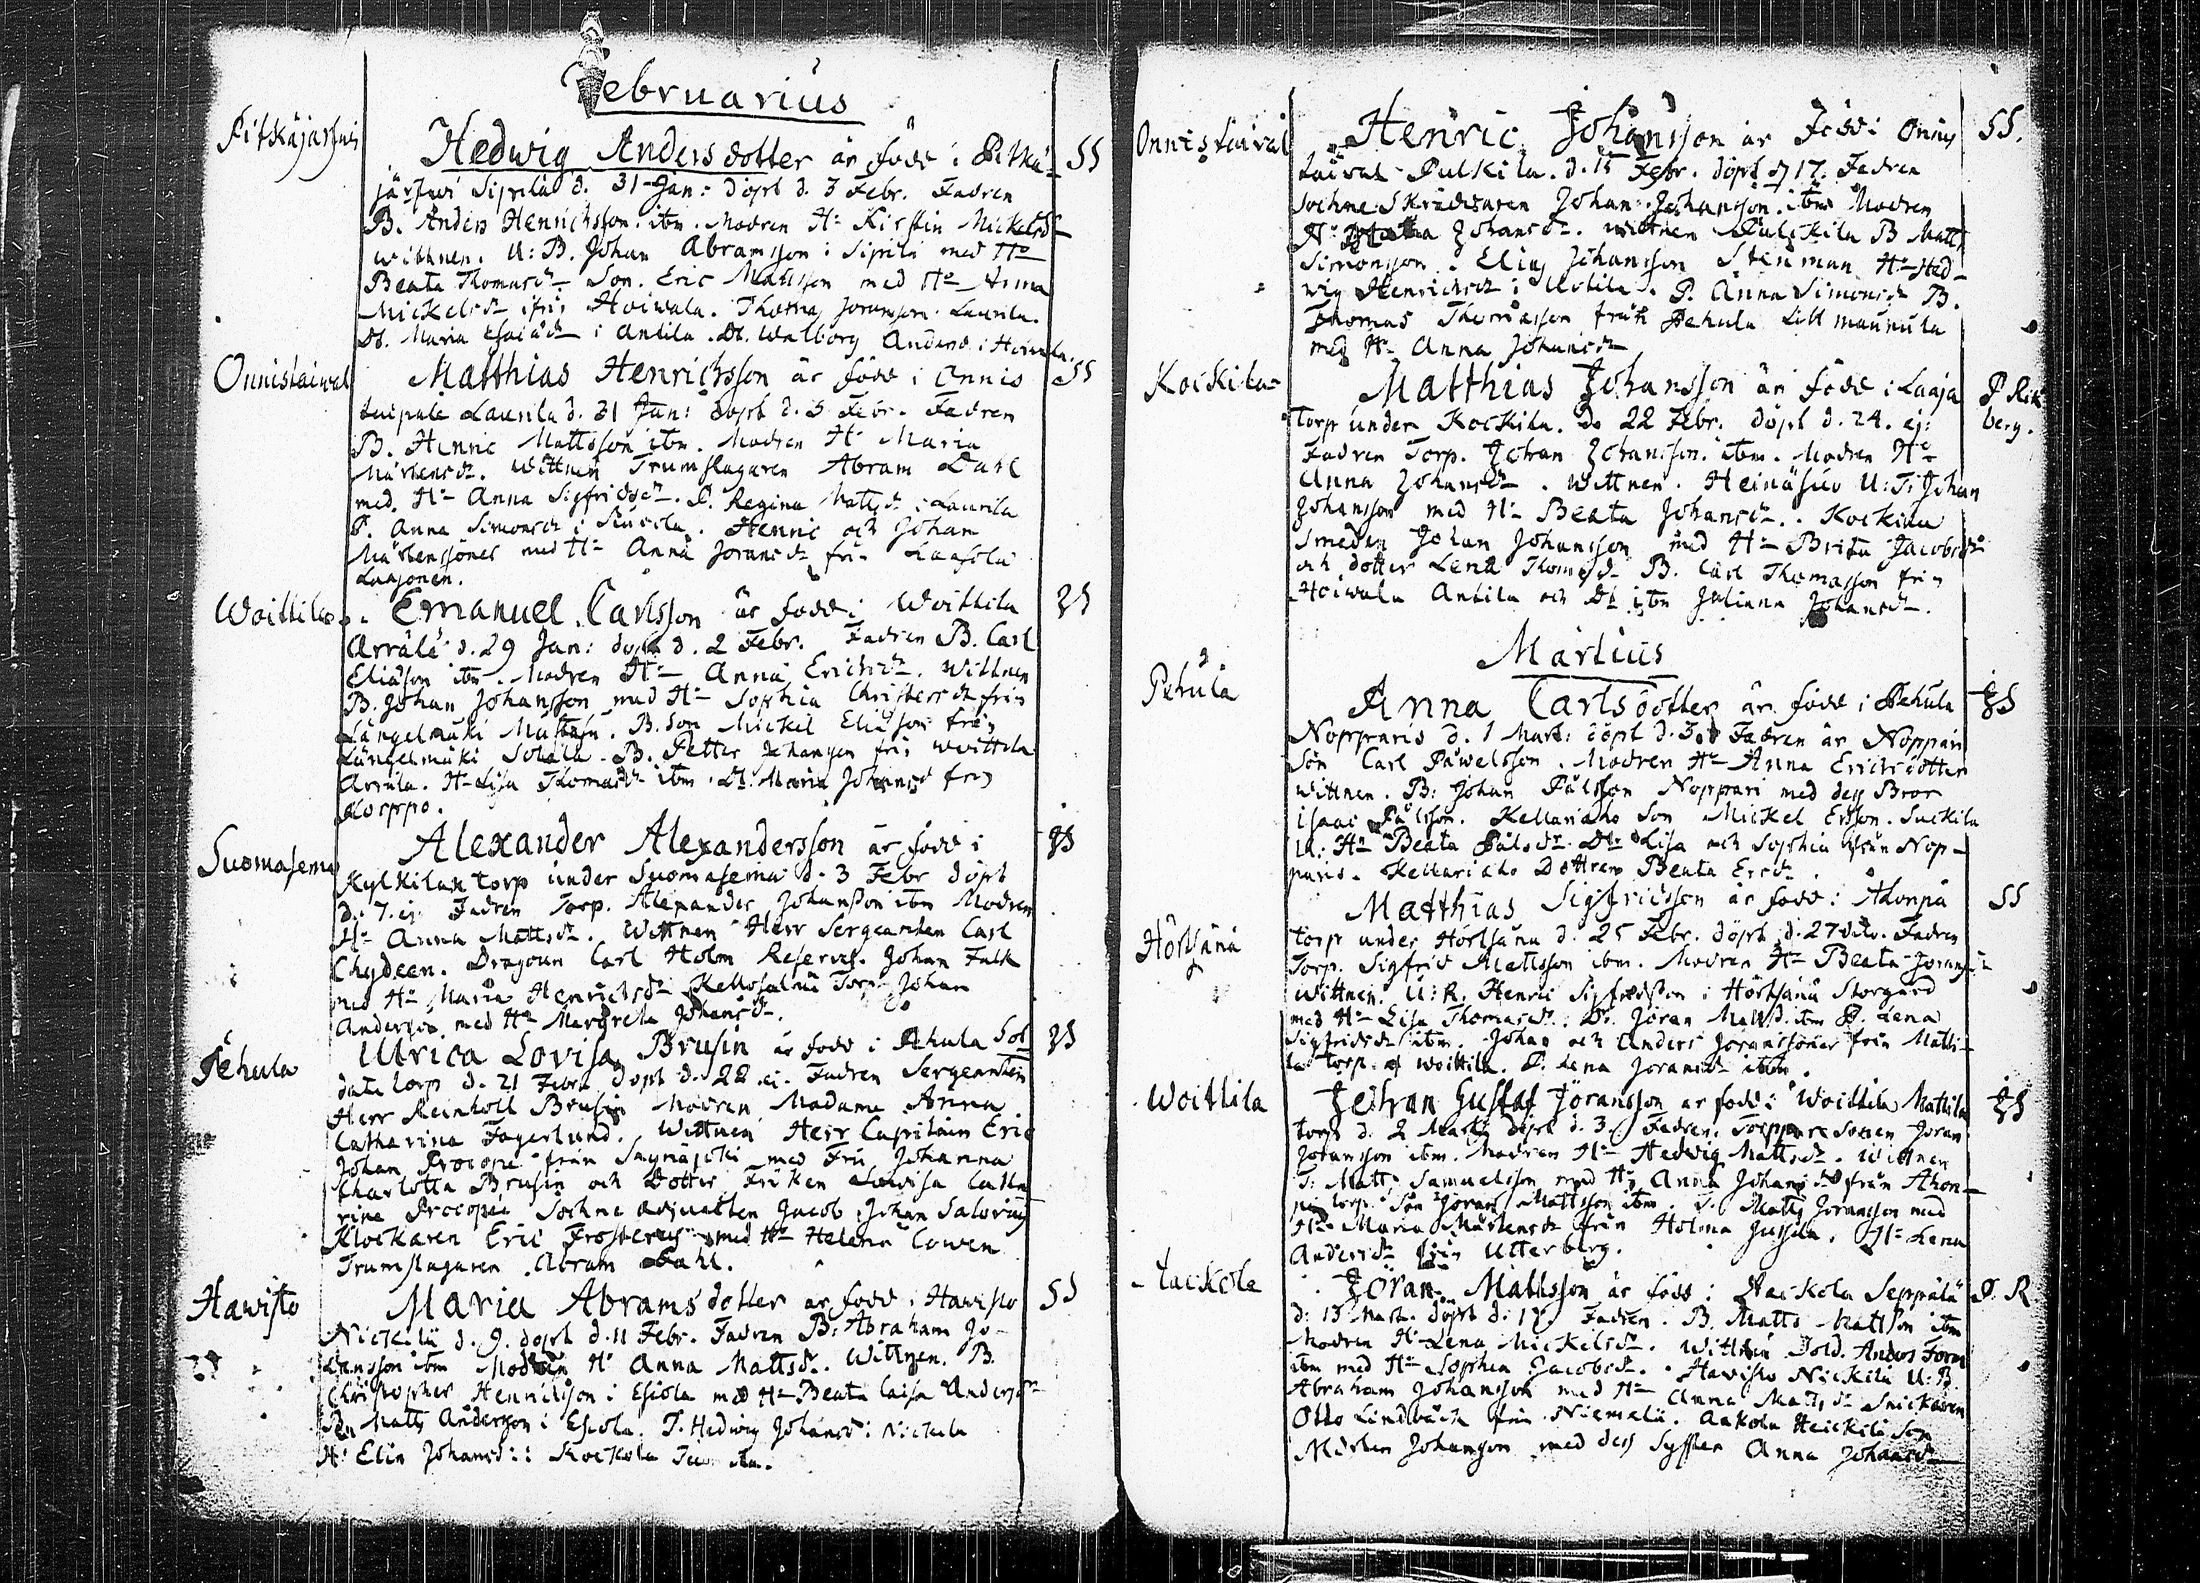 Februarius
Pitkäjärfwi
Hedwig Andersdotter är född i Pitkä- SS
järfwi Siprilä d. 31 Jan: döpt d. 3 Febr. Fadren
B. Anders Henrichsson ibm. Modren H: Kirstin Mickelsd:
wittnen. U: B. Johan Abramsson i Siprilä med H:
Beata Thomasdr Son. Eric Mattsson med H: Anna
Mickelsdr ifrå Hoiwala. Thomas Joransson Laurila.
Dt. Maria Esaiædr i Antila. Dt. Walborg Andersd. i Hoiwala.
Onnistaiwal
Matthias Henrichsson är född i Onnis SS
taipale Laurila d. 31 Jan: döpt d. 3 Febr. Fadren
B. Henric Mattsson ibm. Modren H: Maria
Mårtensdr. Wittnen Trumslagaren Abram Dahl
med H: Anna Sigfridsdr. P. Regina Mattsdr i Laurila
P. Anna Simonsdr i . Henric och Johan
Mårtenssöner med H: Anna Joransdr frå
Laajonen.
Woittila
Emanuel Carlsson är född i Woittila
Arrälä d. 29 Jan: döpt d. 2 Febr. Fadren B. Carl
Eliasson ibm. Modren H: Anna Erichsdr. Wittnen
B. Johan Johansson med H: Sophia Christersdr från
Längelmäki . B. Son Mickel Eliasson från
Längelmäki . B. Petter Johansson frå Woittila
Arrälä. H: Lisa Thomasdr ibm. Dt. Maria Johansd från
Korppo.
Suomasema
Alexander Alexandersson är född i
Kylkilax torp under Suomasema d. 3 Febr döpt
d. 7. ej. Fadren Torp. Alexander Johansson ibm Modren
H: Anna Mattsdr. Wittnen Herr Sergeanten Carl
Chydeen. Dragoun Carl Holm Reserv. Johan Falk
med H: Maria Henrichsdr Kellosalmi Torp. Johan
Andersson med H: Margreta Johansdr.
Pehula
Ulrica Lovisa Brusin är född i Pehula Sol-
date torp d. 21 Febru döpt d. 22 ej. Fadren Sergeanten
Herr Reinholt Brusin Modren Madame Anna
Catharina Fagerlund. Wittnen Herr Capitain Eric
Johan Procopé från med Fru Johanna
Charlotta Brusin och Dotter Fröken Lovisa Catha
rina Procopée Sochne adjuncten Jacob Johan Salovius
Klockaren Eric Frosterus med H: Helena Cowen
Trumslagaren Abram Dahl.
Hawisto
Maria Abramsdotter är född i Hawisto SS
Nickilä d. 9. döpt d. 11 Febr. Fadren B: Abraham Jo-
hansson ibm Modren H: Anna Mattsdr. Wittnen. B.
Christopher Henricsson i Eskola med H: Beata Caisa Andersdr
Matts Andersson i Eskola. P. Hedwig Johansd: Nickila
H: Elin Johansd: i Kockola
Onnistaival
Henric Johansson är född i Onnis SS.
taival Pulkila. d. 15 Febr. döpt d 17. Fadren
Sochne Skräddaren Johan Johansson ibm Modren
H: Johansdr. wittnen Pulckila B Matts
Simonsson. Elias Johansson Stenman H: Hed-
wig Henrichsdr i . P. Anna Simonsdr B.
Thomas Thomasson från Pehula Lill maunula
med H: Anna Johansdr
Kockila
Matthias Johansson är född i Laaja P Rik
torp under Kockila. d. 22 Febr. döpt d. 24. ej: berg.
Fadren Torp. Johan Johansson. ibm. Modren H:
Anna Johansdr. Wittnen. Heinäsuo U: T: Johan
Johansson med H: Beata Johansdr. Kockila
Smeden Johan Johansson med H: Brita Jacobsdr
och dotter Lena Thomsd B. Carl Thomasson frå
Hoiwala Antila och Dt ibm Juliana Johansdr.
Martius
Pehula
Anna Carlsdotter är född i Pehula
Npparis d. 1 Mart: döpt d. 3. Fadren är Noppari
Son Carl Påwelsson. Modren H: Anna Erichsdotter
wittnen. B: Johan Pålsson Noppari med dess Bror
Isaac Pålsson. Kellariaho Son Mickel Ersson. Suckila
U: H: Beata Pålsdr. Dt: Lisa och Sophia från Nop-
paris. Kellariaho Dottren Beata Ersdr.
Hörtsänä
Matthias Sigfridsson är född i Ahonpä SS
torp under Hörtsänä d. 25 Febr. döpt d. 27 dito. Fadren
Torp. Sigfrid Mattsson ibm. Modren H: Beata Joransdr
Wittnen. U: R. Henric Sigfridsson i Hörtsänä Storgård
med H: Lisa Thomasdr. Dr. Jöran Matts ibm P. Lena
Sigfridsdr ibm. Johan och Anders Joranssöner från Matti-
la torp. af Woittila. P. Lena Joransdr ibm.
Woittila
Johan Gustaf Jöransson är född i Woittila Mattila
torp d. 2 Marti döpt d. 3. Fadren. Torppare Sonen Joran
Joransson ibm. Modren H: Hedwig Mattsdr. Wittnen
T: Matts Samuelsson med H: Anna Johansd från Ahon-
pä torp. Son Joran Mattsson ibm. T: Matts Joransson med
H: Maria Mårtensdr från Holma Jussila. H: Lena
Andersdr från Utterberg.
Jöran Mattsson är född i Seppälä P. R
d. 15 Mart. döpt d. 17. Fadren. B. Matts Mattson ibm
Modren H: Lena Mickelsdr. Wittnen Sold. Anders Forn
ibm med H: Sophia Jacobsdr. Hawisto Nickilä U: B.
Abraham Johansson med H: Anna Mattsdr Snickaren
Otto Lindbäck från Niemelä. Aakola Heickilä Son
Mårten Johansson med dess Syster Anna Johansdr